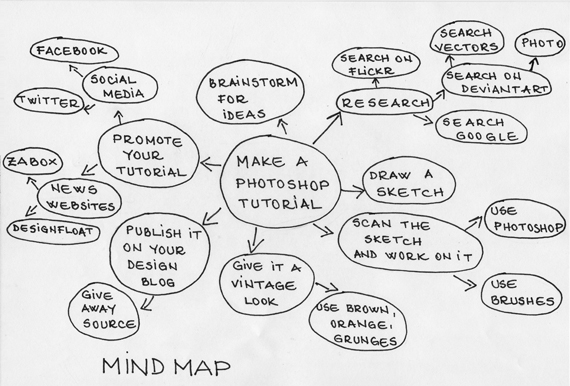 FACEBOOK
SOCIAL
MEDIA
TWITTER
BRAINSTORM
FOR
IDEAS
SEARCH ON
FLICKR
RESEARCH
SEARCH
VECTORS
PHOTO
SEARCH ON
DEVIANTART
SEARCH
GOOGLE
PROMOTE
YOUR
TUTORIAL
ZABOX
NEWS
WEBSITES
DESIGNFLOAT
MAKE A
PHOTOSHOP
TUTORIAL
DRAW A
SKETCH
SCAN THE
SKETCH
AND WORK ON IT
USE
PHOTOSHOP
USE
BRUSHES
PUBLISH IT
ON YOUR
DESIGN
BLOG
GIVE
AWAY
SOURCE
GIVE IT A
VINTAGE
LOOK
USE BROWN,
ORANGE,
GRUNGES
MIND MAP